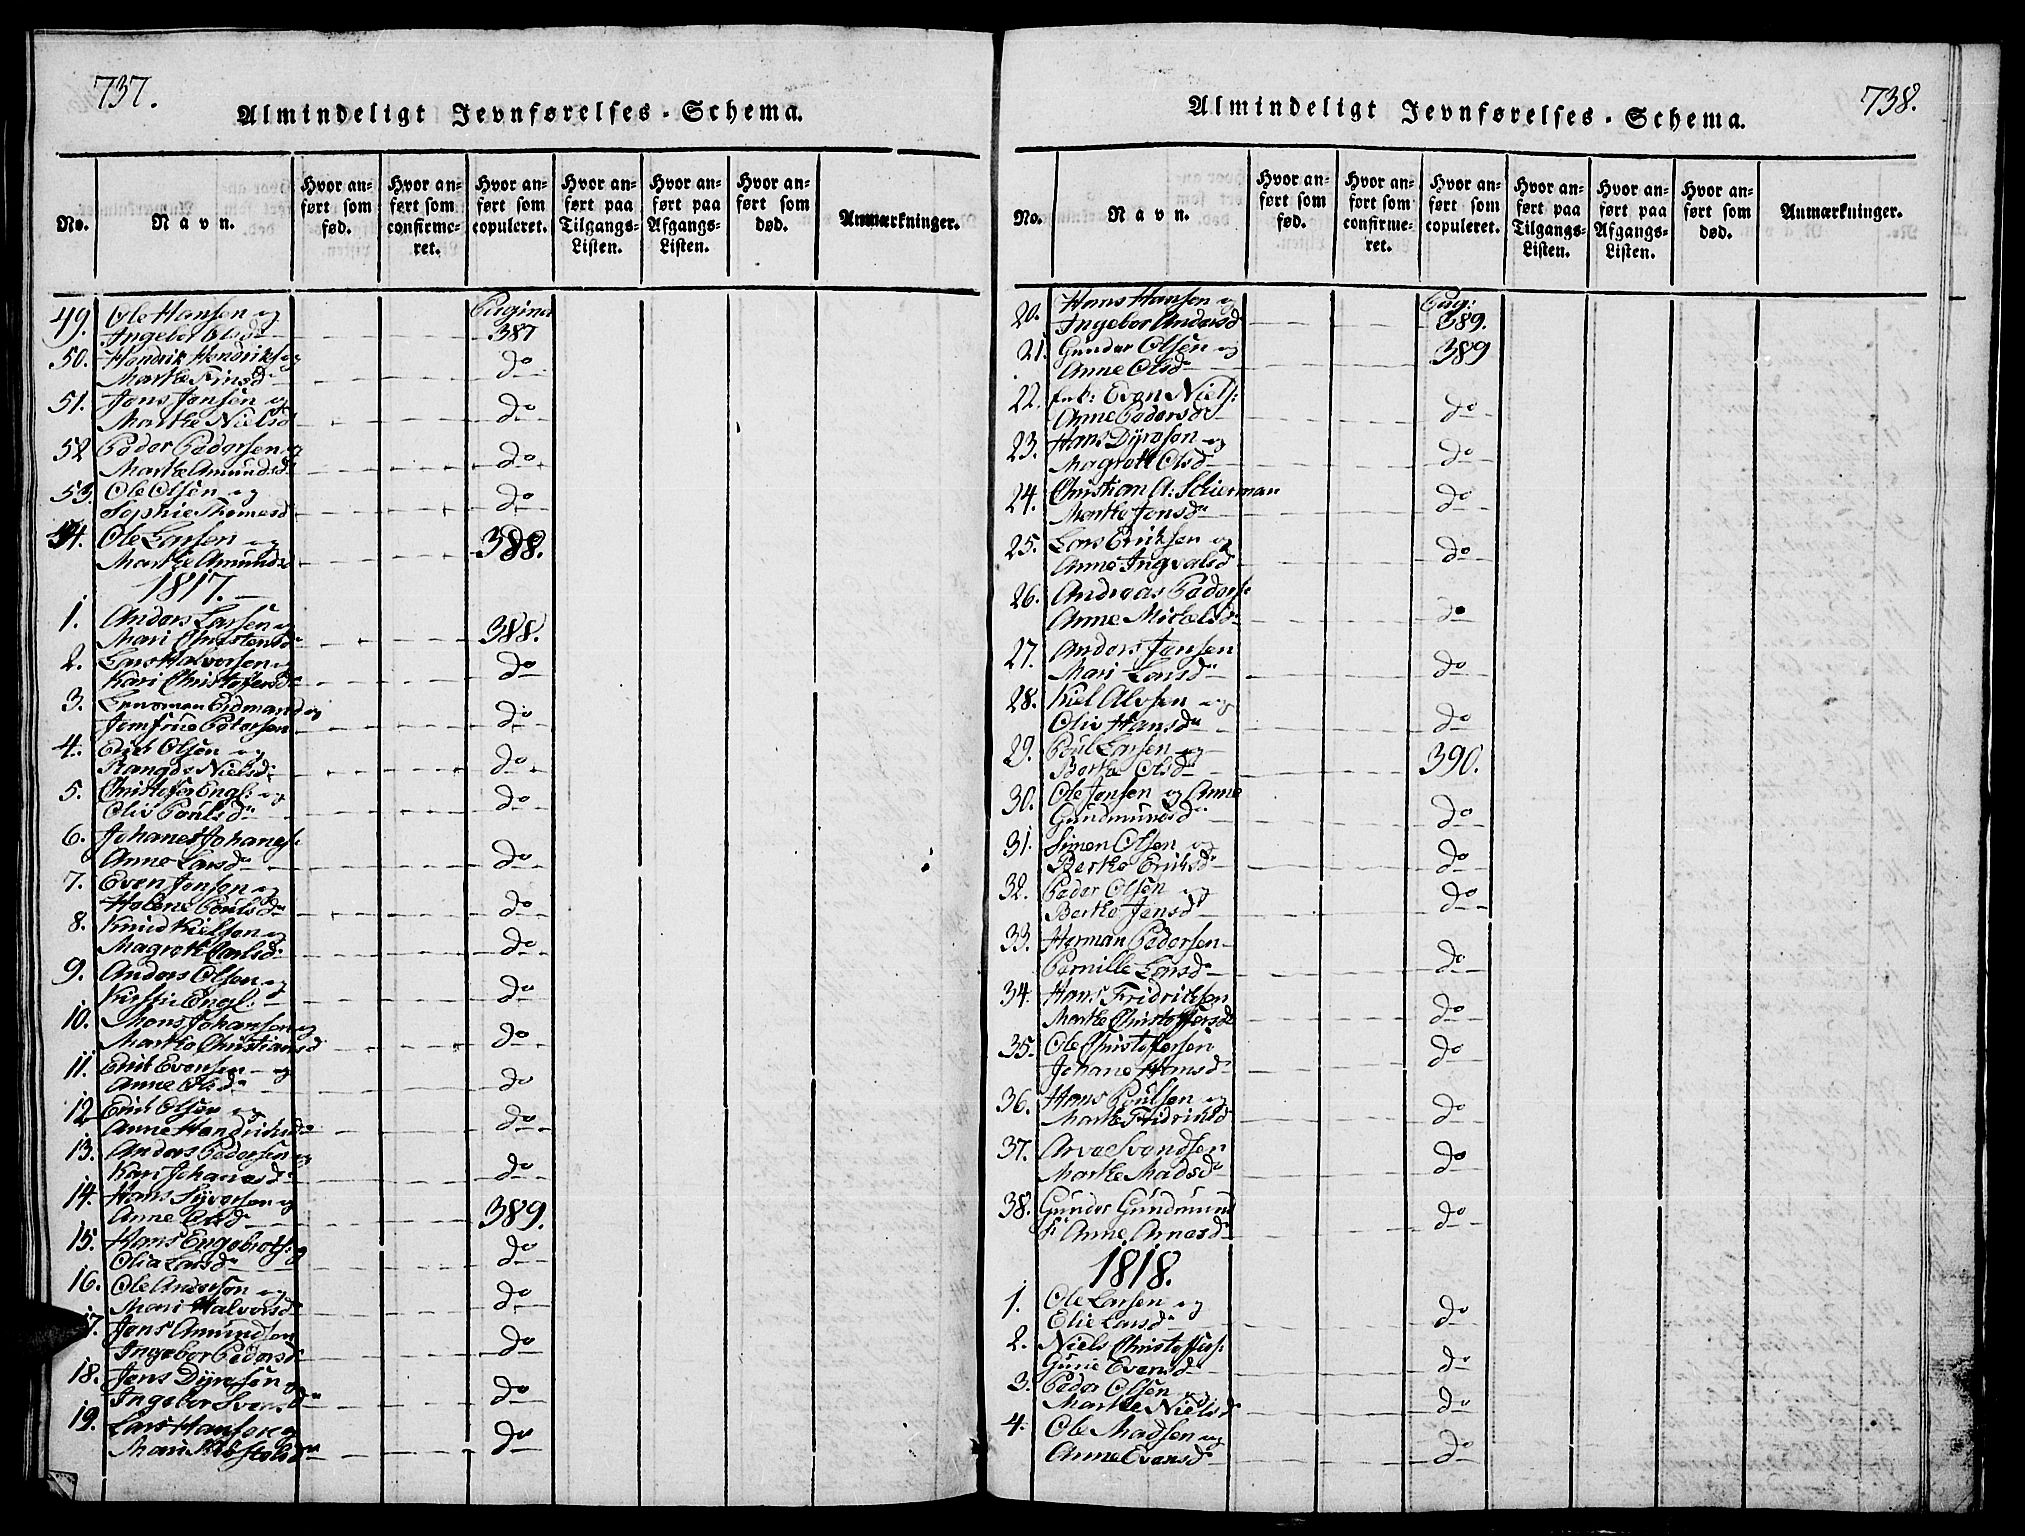 737.
Almindeligt Jevnførelses-Schema.
No. Navn. Hvor anført som fød. Hvor anført som confirmeret. Hvor anført som copuleret. Hvor anført paa Tilgangs-Listen. Hvor anført paa Afgangs-Listen. Hvor anført som død. Anmærkninger.
49. Ole Hansen og Pagina
Ingebor Olsd 387
50. Hendrik Hendriks og
Marthe Finsd do
51. Jens Jensen og
Marthe Nielsd do
52 Peder Pedersen og
Marthe Amundsd do
53. Ole Olsen og
Sophie Thomasd do
54. Ole Larsen og
Marthe Amunds 388.
1817.
1. Anders Larsen og
Mari Christensd 388.
2. Lars Halvorsen og
Kari Christofersd do
3. Lensman Eidmand og
Jomfrue Petersen do
4. Erich Olsen og
Rangde Nielsd: do
5. Christofer Engl: og
Oliv Poulsd do
6. Johanes Johanes:
Anne Larsd do
7. Even Jensen og
Helene Poulsd do
8. Knud Kielsen og
Magrethe Carlsd do
9. Anders Olsen og
Kirsti Engl: d do
10. Mons Johansen og
Marthe Christiansd do
11. Erich Evensen og
Anne Olsd do
12. Erich Olsen og
Anne Hendrichsd do
13. Anders Pedersen og
Kari Johanesd do
14. Hans Syversen og
Anne Olsd 389.
15. Hans Engebrets: og
Olia Larsd do
16. Ole Andersen og
Mari Halvorsd do
17. Jens Amundsen
Ingebor Pedersd do
18. Jens Dyresen og
Ingebor Svensd do
19. Lars Hansen og
Mari do
738.
Almindeligt Jevnførelses-Schema.
No. Navn. Hvor anført som fød. Hvor anført som confirmeret. Hvor anført som copuleret. Hvor anført paa Tilgangs-Listen. Hvor anført paa Afgangs-Listen. Hvor anført som død. Anmærkninger.
20. Hans Hansen og Pag:
Ingebor Andersd 389.
21. Gunder Olsen og 389
Anne Olsd
22. Enk: Even Niels:
Anne Pedersd do
23. Hans Dyresen og
Magrett Olsd do
24. Christian A: Schierman
Marthe Jensd do
25. Lars Eriksen og
Anne Ingvalsd do
26. Andreas Peders:
Anne Mikelsd do
27. Anders Jensen
Mari Larsd do
28. Kiel Alvsen og
Oliv Hansd do
29. Poul Larsen og
Berthe Olsd 390.
30. Ole Jensen og Anne
Gundmundsd do
31. Simen Olsen og
Berthe Eriksd do
32. Peder Olsen og
Berthe Jensd do
33. Herman Pedersen
Pernille Larsd do
34. Hans Fridriksen
Marthe Christoffersd do
35. Ole Christofersen
Johane Hansd do
36. Hans Poulsen og
Marthe Fridriksd do
37. Arve Svendsen
Marthe Madsd do
38. Gunder Gundmund
S: Anne Arnesd do
1818.
1. Ole Larsen og
Elie Larsd do
2. Niels Christoffers:
Gurie Evensd do
3. Peder Olsen og
Marthe Nielsd do
4. Ole Madsen og
Anne Evensd do